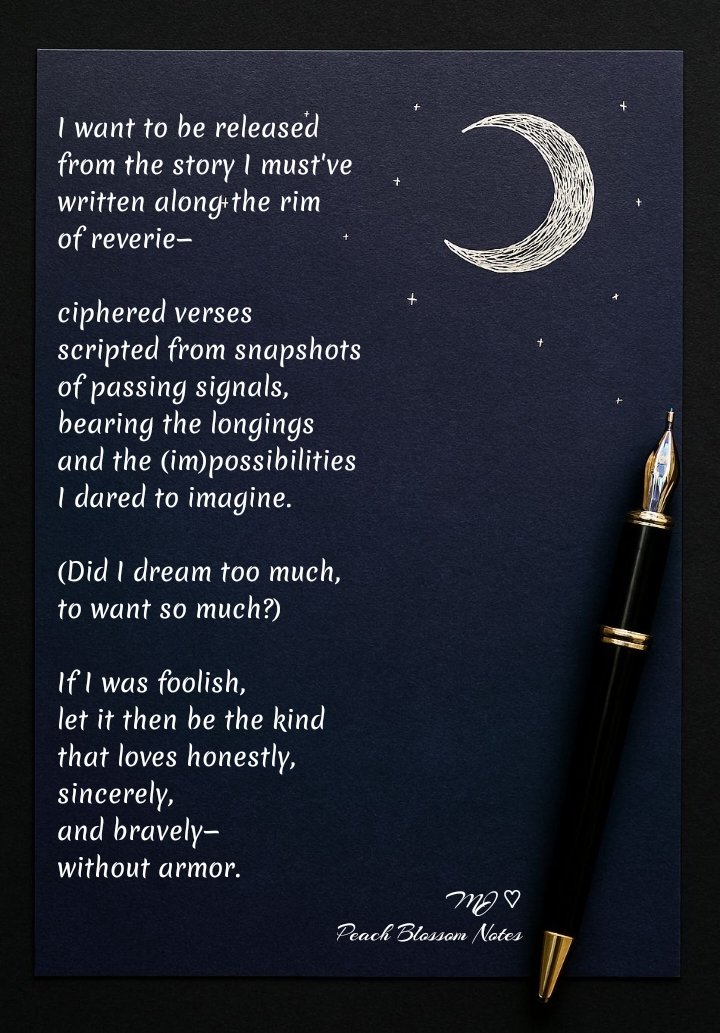 I want to be released
from the story I must've
written along the rim
of reverie—
ciphered verses
scripted from snapshots
of passing signals,
bearing the longings
and the (im)possibilities
I dared to imagine.
(Did I dream too much,
to want so much?)
If I was foolish,
let it then be the kind
that loves honestly,
sincerely,
and bravely—
without armor.
MJ ♡
Peach Blossom Notes